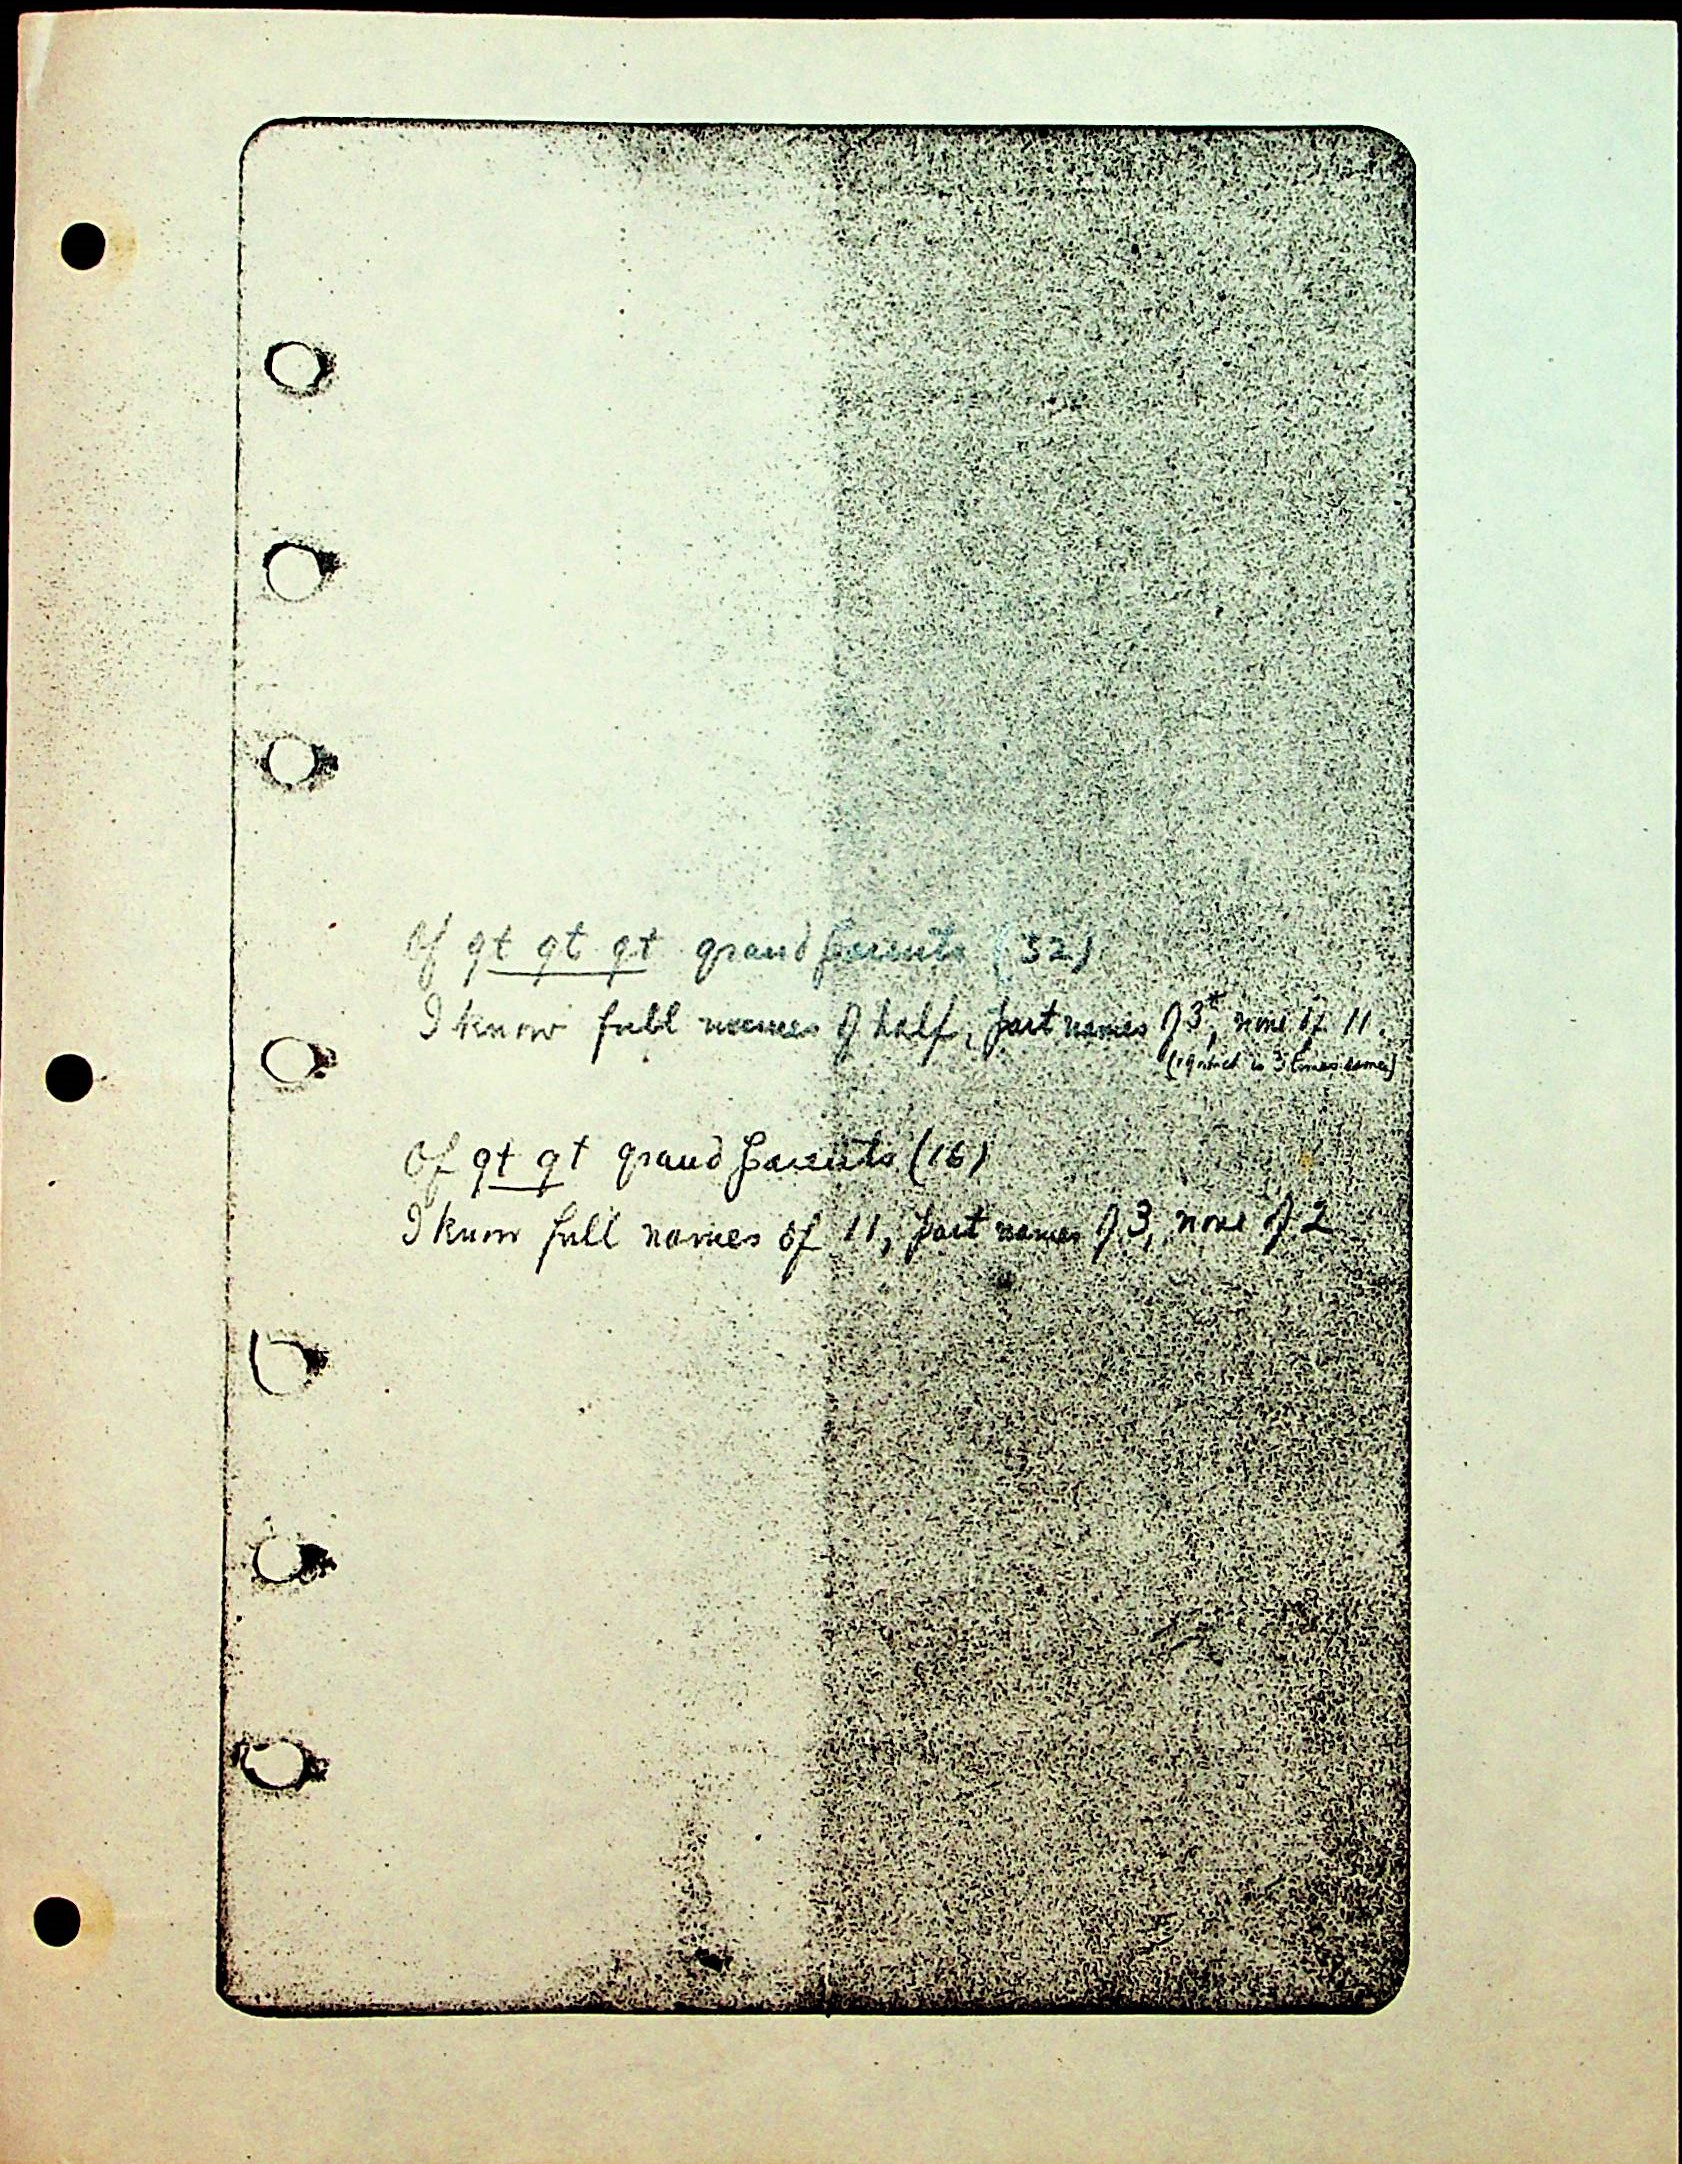 Of gt gt gt grandparents (32)
I know full names of half, part names of 3*, none of 11.
(1 of which is 3 times same)
Of gt gt grandparents (16)
I know full names of 11, part names of 3, none of 2